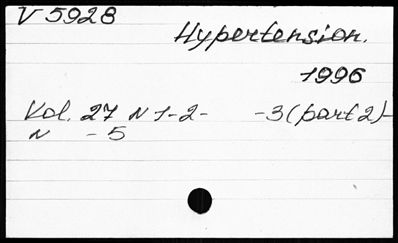 V 5928
Hypertension.
1996
Vol. 27 N 1-2- -3 (part 2)-
N - 5